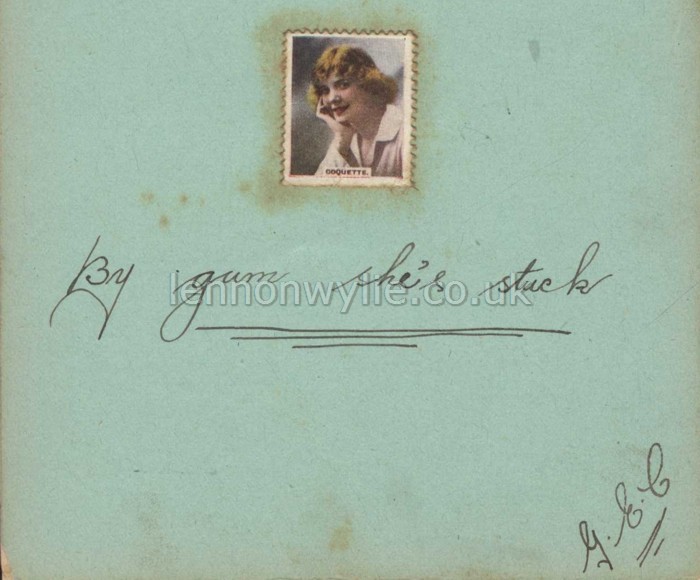 COQUETTE.
By gum she's stuck
lennonwylie.co.uk
G.E.C